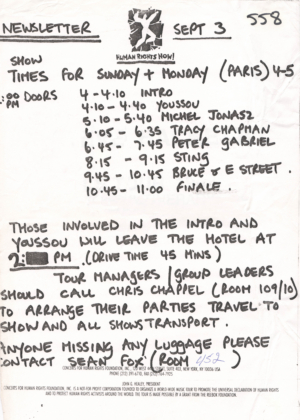 558
NEWSLETTER SEPT 3
HUMAN RIGHTS NOW!
SHOW
TIMES FOR SUNDAY + MONDAY (PARIS) 4-5
:00 PM DOORS 4 - 4.10 INTRO
4.10 - 4.40 YOUSSOU
5.10 - 5.40 MICHEL JONASZ
6.05 - 6.35 TRACY CHAPMAN
6.45 - 7.45 PETER GABRIEL
8.15 - 9.15 STING
9.45 - 10.45 BRUCE + E STREET.
10.45 - 11.00 FINALE.
THOSE INVOLVED IN THE INTRO AND
YOUSSOU WILL LEAVE THE HOTEL AT
2: PM .(DRIVE TIME 45 MINS)
TOUR MANAGERS / GROUP LEADERS
SHOULD CALL CHRIS CHAPPEL (ROOM 109/10)
TO ARRANGE THEIR PARTIES TRAVEL TO
SHOW AND ALL SHOWS TRANSPORT.
ANYONE MISSING ANY LUGGAGE PLEASE
CONTACT SEAN FOX (ROOM 452)
CONCERTS FOR HUMAN RIGHTS FOUNDATION, INC.
JOHN G. HEALEY, PRESIDENT
CONCERTS FOR HUMAN RIGHTS FOUNDATION, INC. IS A NOT-FOR-PROFIT CORPORATION FOUNDED TO ORGANIZE A WORLD WIDE MUSIC TOUR TO PROMOTE THE UNIVERSAL DECLARATION OF HUMAN RIGHTS
AND TO PROTECT HUMAN RIGHTS ACTIVISTS AROUND THE WORLD. THE TOUR IS MADE POSSIBLE BY A GRANT FROM THE REEBOK FOUNDATION